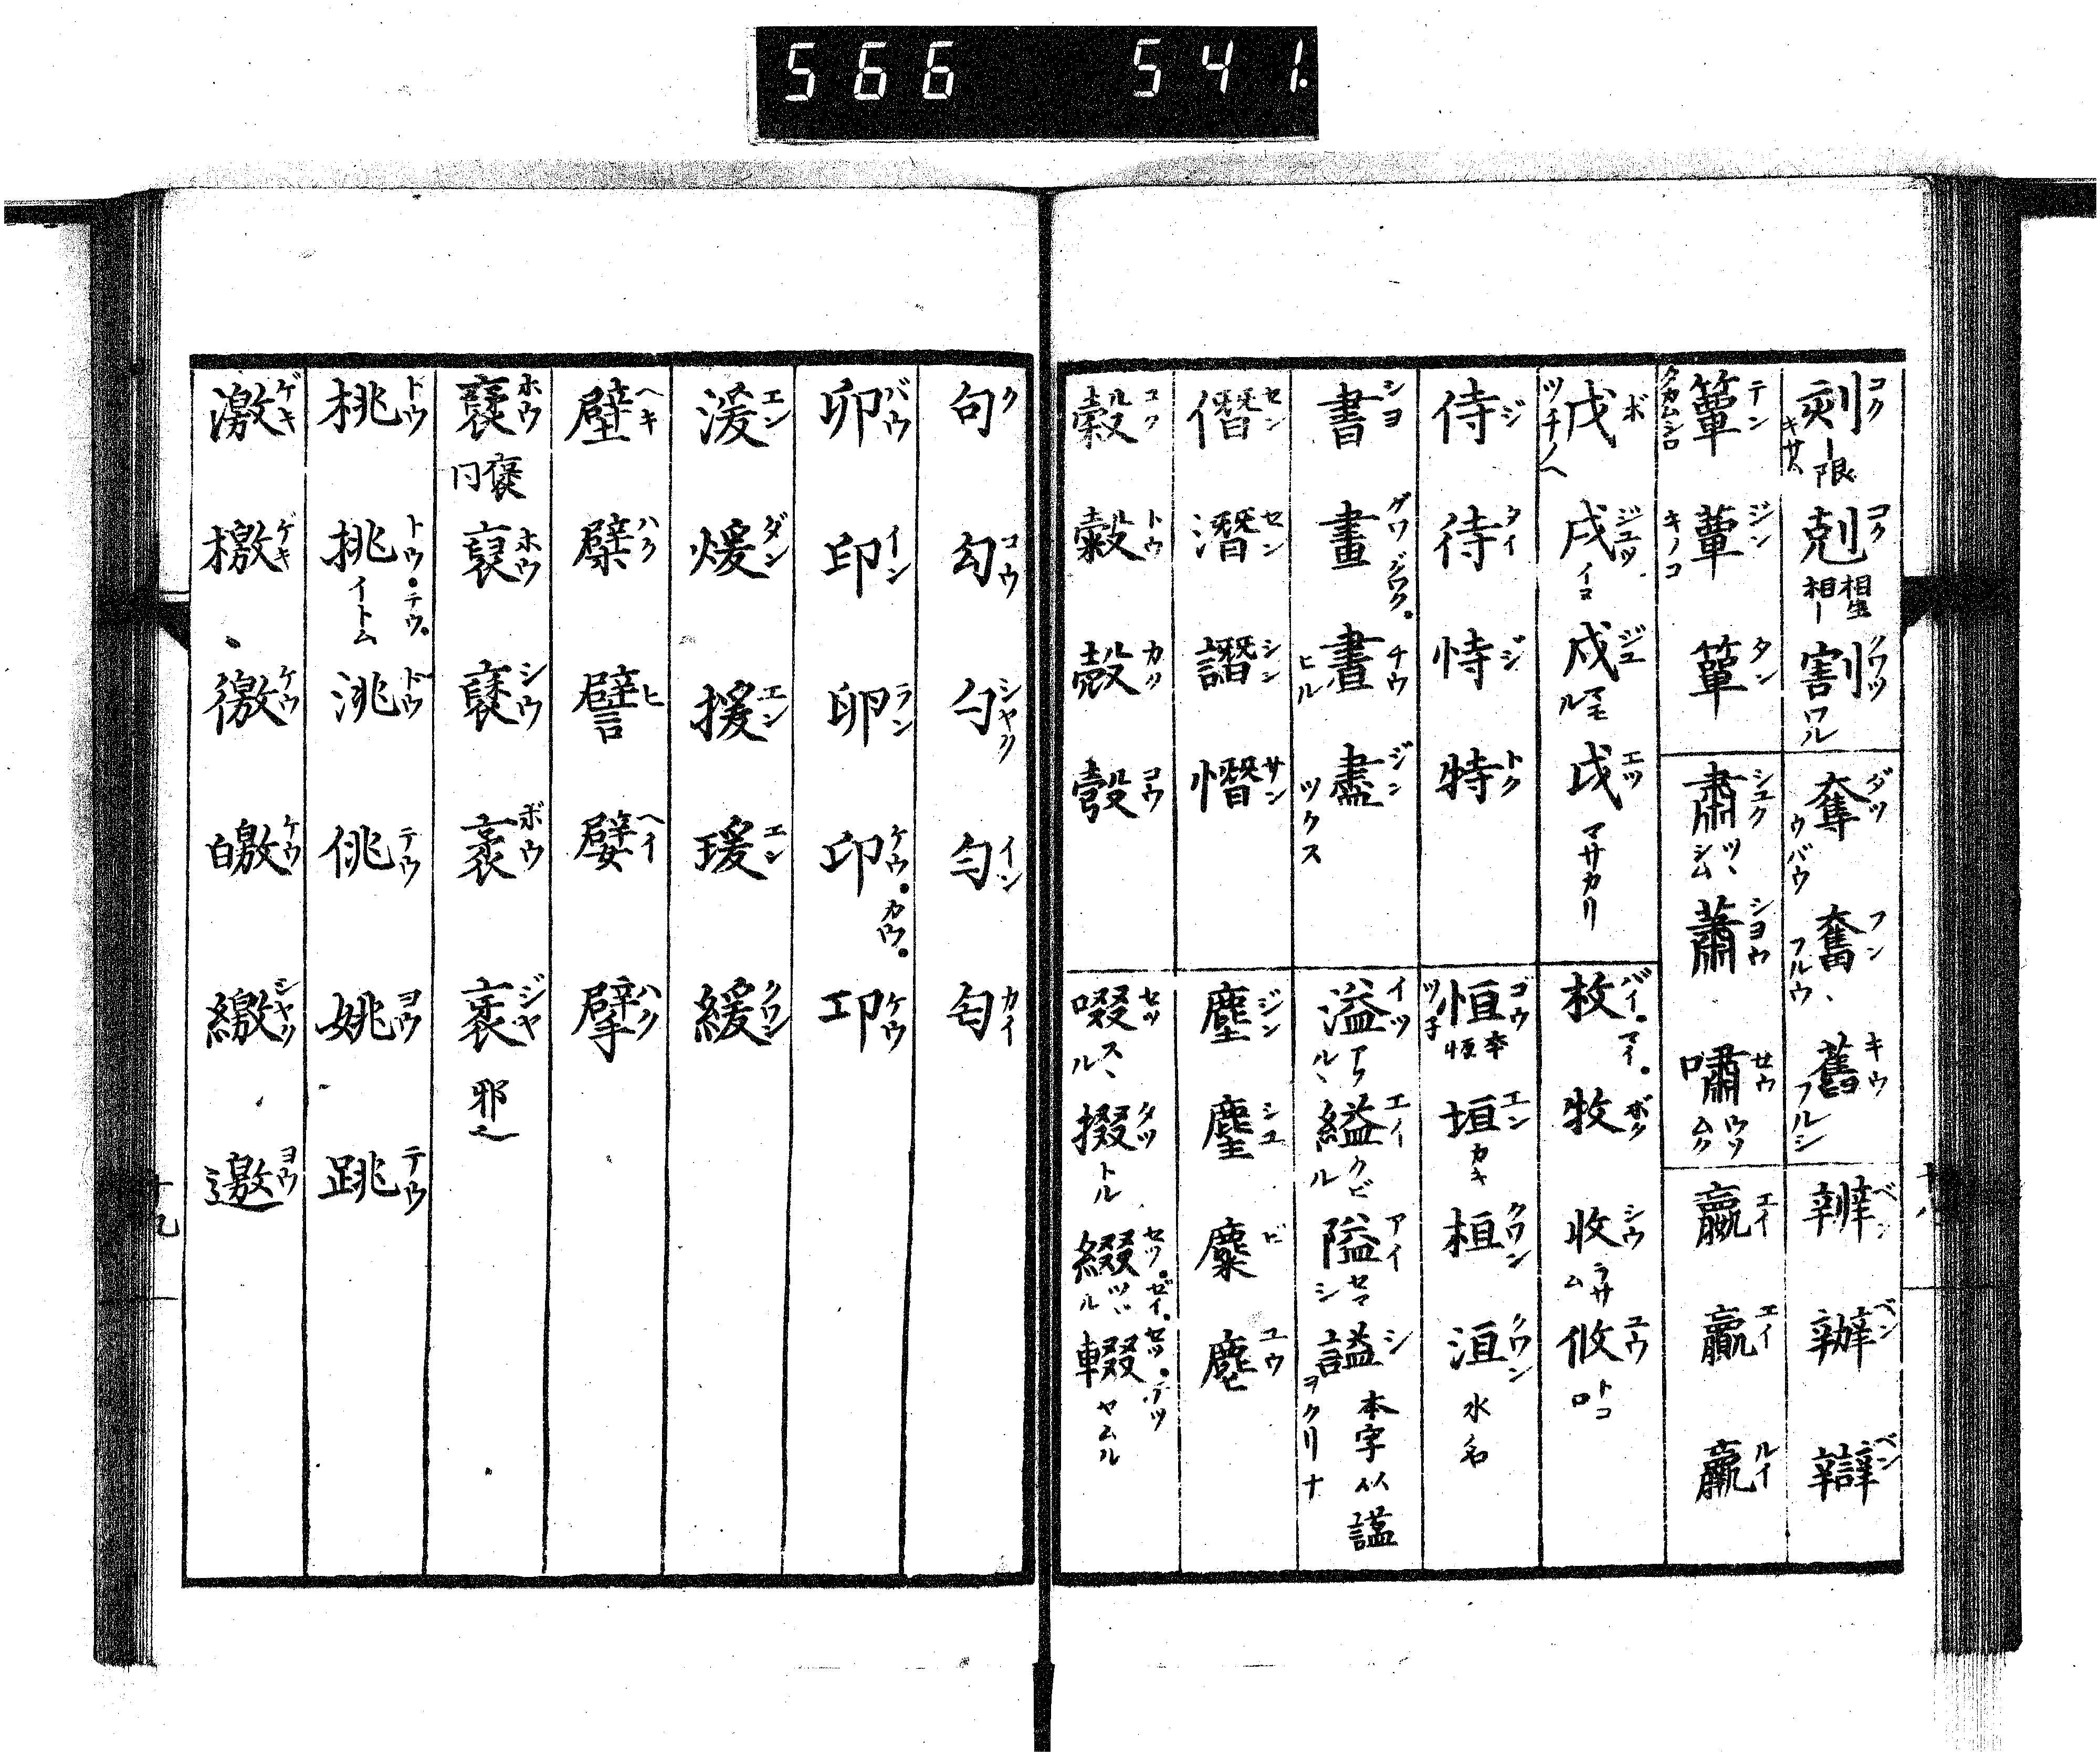 566 541.
刻コク 一限 キサム 剋コク 相生相一 割クワツ ワル 奪ダツ ウバウ 奮フン フルウ 舊キウ フルシ 辨ベン 辦ベン 辯ベン
簟テン タカムシロ 蕈ジン キノコ 簞タン 肅シユク ツヽシム 蕭シヨウ 嘯セウ ウソムク 嬴エイ 贏エイ 羸ルイ
戊ボ ツチノヘ 戌ジユツ イヌ 戍ジユ マモル 戉エツ マサカリ 枚バイ。マイ。 牧ボク 收シウ ヲサム 攸ユウ トコロ
侍ジ 待タイ 恃ジ 特トク 恒ゴウ ツ子 本恆 垣エン カキ 桓クワン 洹クワン 水名
書シヨ 畫グワ。クワク。 晝チウ ヒル 盡ジン ツクス 溢イツ アフルヽ 縊エイ クビル 隘アイ セマシ 諡シ ヲクリナ 本字以諡
僭セン 潛セン 譖シン 憯サン 塵ジン 麈シユ 麋ビ 麀ユウ
穀コク 糓トウ 殻カク 彀コウ 啜セツ スヽル 掇タツ トル 綴セツ。ゼイ。 ツヾル 輟セツ。テツ ヤムル
句ク 勾コウ 勺シヤク 勻イン 匂カイ
卯バウ 印イン 卵ラン 卬ケウ。カウ。 卭ケウ
湲エン 煖ダン 援エン 瑗エン 緩クワン
壁ヘキ 檗ハク 譬ヒ 嬖ヘイ 擘ハク
襃ホウ 同褒 裒ホウ 褎シウ 袤ボウ 衺ジヤ 邪之
桃トウ 挑トウ。テウ。 イトム 洮トウ 佻テウ 姚ヨウ 跳テウ
激ゲキ 檄ゲキ 徼ケウ 皦ケウ 繳シヤク 邀ヨウ